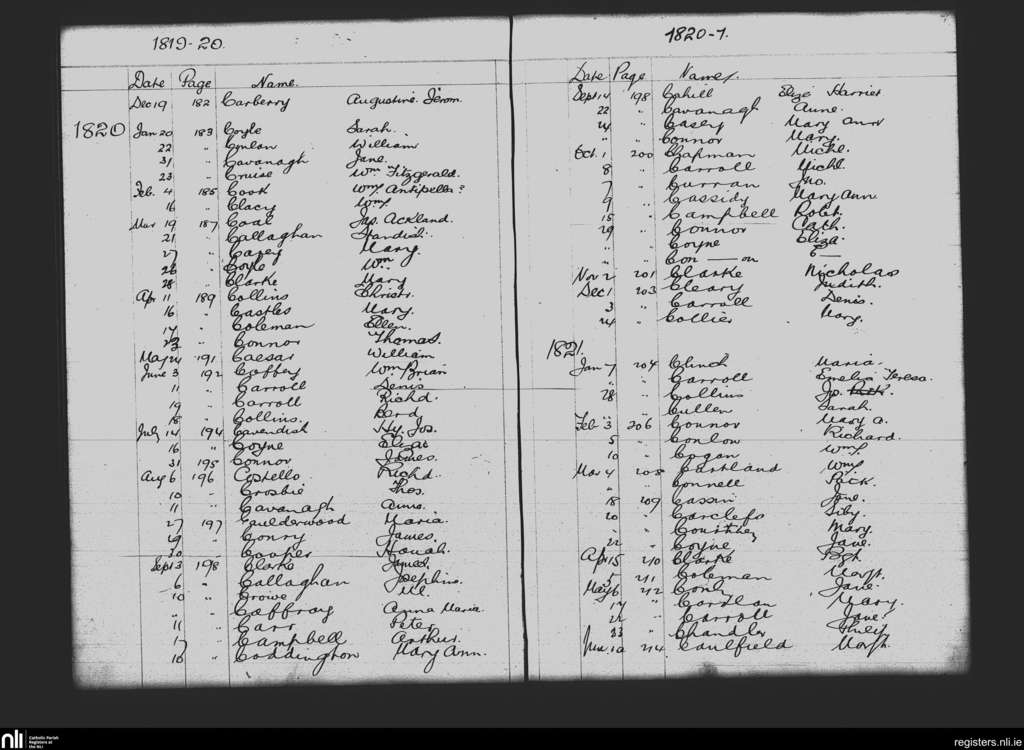 1819-20.
Date Page Name.
Dec 19 182 Carberry Augustine Jerom.
1820 Jan 20 183 Coyle Sarah.
22 " Conlan William
31 " Cavanagh Jane.
23 " Cruise Wm Fitzgerald.
Feb. 4 185 Cook Wm Antipellis?
16 " Clacy Wm
Mar 19 187 Coal Jas. Ackland.
21 " Callaghan Standish.
27 " Casey Mary
26 " Coyle Wm
28 " Clarke Mary
Apr 11 189 Collins Christr.
16 " Castles Mary.
17 " Coleman Ellen.
23 " Connor Thomas.
May 24 191 Caesar William
June 3 192 Coffey Wm Brian
11 " Carroll Denis
19 " Carroll Richd.
18 " Collins.
July 14 194 Cavendish Hy. Jos.
16 " Coyne Eliza
31 195 Connor James.
Aug 6 196 Costello Richd
10 " Crosbie Thos.
11 " Cavanagh Anne.
27 197 Caulderwood Maria.
29 " Conry James.
30 " Cooper Hanah.
Sept 3 198 Clarke James.
6 " Callaghan Josephine.
10 " Crowe Ml.
" " Caffray Anna Maria.
11 " Carr Peter
17 " Campbell Arthur.
10 " Coddington Mary Ann.
1820-1.
Date Page Name.
Sept 14 198 Cahill Eliza Harriet
22 " Cavanagh Anne.
24 " Casey Mary Ann
" " Connor Mary.
Oct. 1 200 Chapman Michl.
8 " Carroll Michl.
7 " Curran Jno.
9 " Cassidy Mary Ann
15 " Campbell Robt.
29 " Connor Cath.
" " Coyne Eliza.
" " Con — on E —
Nov 2 201 Clarke Nicholas
Dec 1 203 Cleary Judith.
3 " Carroll Denis.
24 " Collier Mary.
1821.
Jan 7 204 Clinch Maria.
" " Carroll Emelia Teresa.
28 " Collins Jo.
" " Cullen Sarah.
Feb 3 206 Connor Mary A.
5 " Conlon Richard.
10 " Cogan Wm.
Mar 4 208 Cartland Wm
" " Connell Patk.
18 209 Cassin Jane.
20 " Siby.
" " Courtney Mary.
22 " Coyne Jane.
Apr 15 210 Clarke Bgt
5 211 Coleman Margt.
May 6 212 Jane.
17 " Mary.
22 " Carroll Jane.
23 " Chandler
June 10 214 Caulfield Margt.
nli
Catholic Parish
Registers at
the NLI
registers.nli.ie